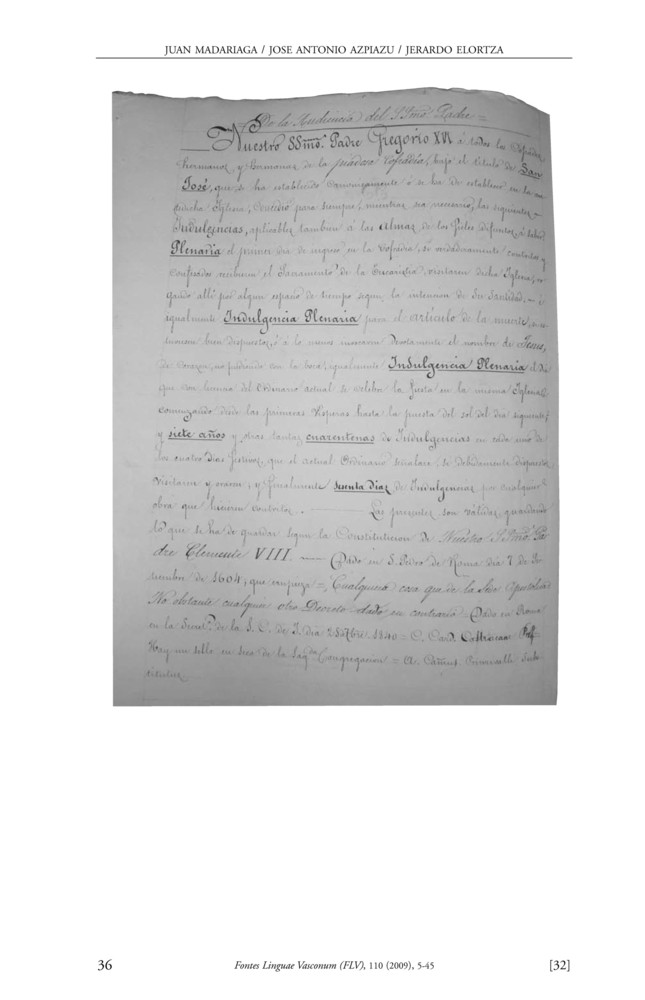 JUAN MADARIAGA / JOSE ANTONIO AZPIAZU / JERARDO ELORTZA
De la Audiencia del SSmo. Padre =
Nuestro SSmo. Padre Gregorio XVI á todos los Cofrades
hermanos, y hermanas de la piadosa Cofradía, bajo el titulo de San
José, que se ha establecido canonicamente ó se ha de establecer en la
dicha Iglesia, Concedió para siempre, mientras sea necesario, las siguientes
Indulgencias, aplicables tambien á las Almas de los fieles difuntos, á saber
Plenaria el primer dia de ingreso en la Cofradia, si verdaderamente contritos y
confesados recibieren el Sacramento de la Eucaristia, visitaren dicha Iglesia,
gando alli por algun espacio de tiempo segun la intencion de Su Santidad,
igualmente Indulgencia Plenaria para el articulo de la muerte,
bien dispuestos, ó á lo menos invocaren Devotamente el nombre de Jesus,
de corazon, no pudiendo con la boca, igualmente Indulgencia Plenaria el dia
que con licencia del Ordinario actual se celebra la fiesta en la misma Iglesia,
comenzando desde las primeras Visperas hasta la puesta del sol del dia siguiente,
y siete años y otras tantas cuarentenas de Indulgencias en cada uno de
los cuatro dias festivos, que el actual Ordinario señalare, si debidamente dispuestos
visitaren y oraren, y finalmente sesenta Dias de Indulgencias por cualquier
obra que hicieren contritos. — Las presentes son validas, guardando
lo que se ha de guardar segun la Constitutucion de Nuestro S. Padre Pa
dre Clemente VIII. — Dado en S. Pedro de Roma dia 7 de De
ciembre de 1604, que empieza = Cualquiera cosa que de la Sede Apostolica
No obstante cualquier otro Decreto dado en contrario. Dado en Roma
en la Secret.ª de la S. C. de I. dia 1840 = C. Card. Castracane Pref.
Hay un sello en seco de la Sag.da Congregacion = A. Canus. Primicelli Sub
titutus
36
Fontes Linguae Vasconum (FLV), 110 (2009), 5-45
[32]